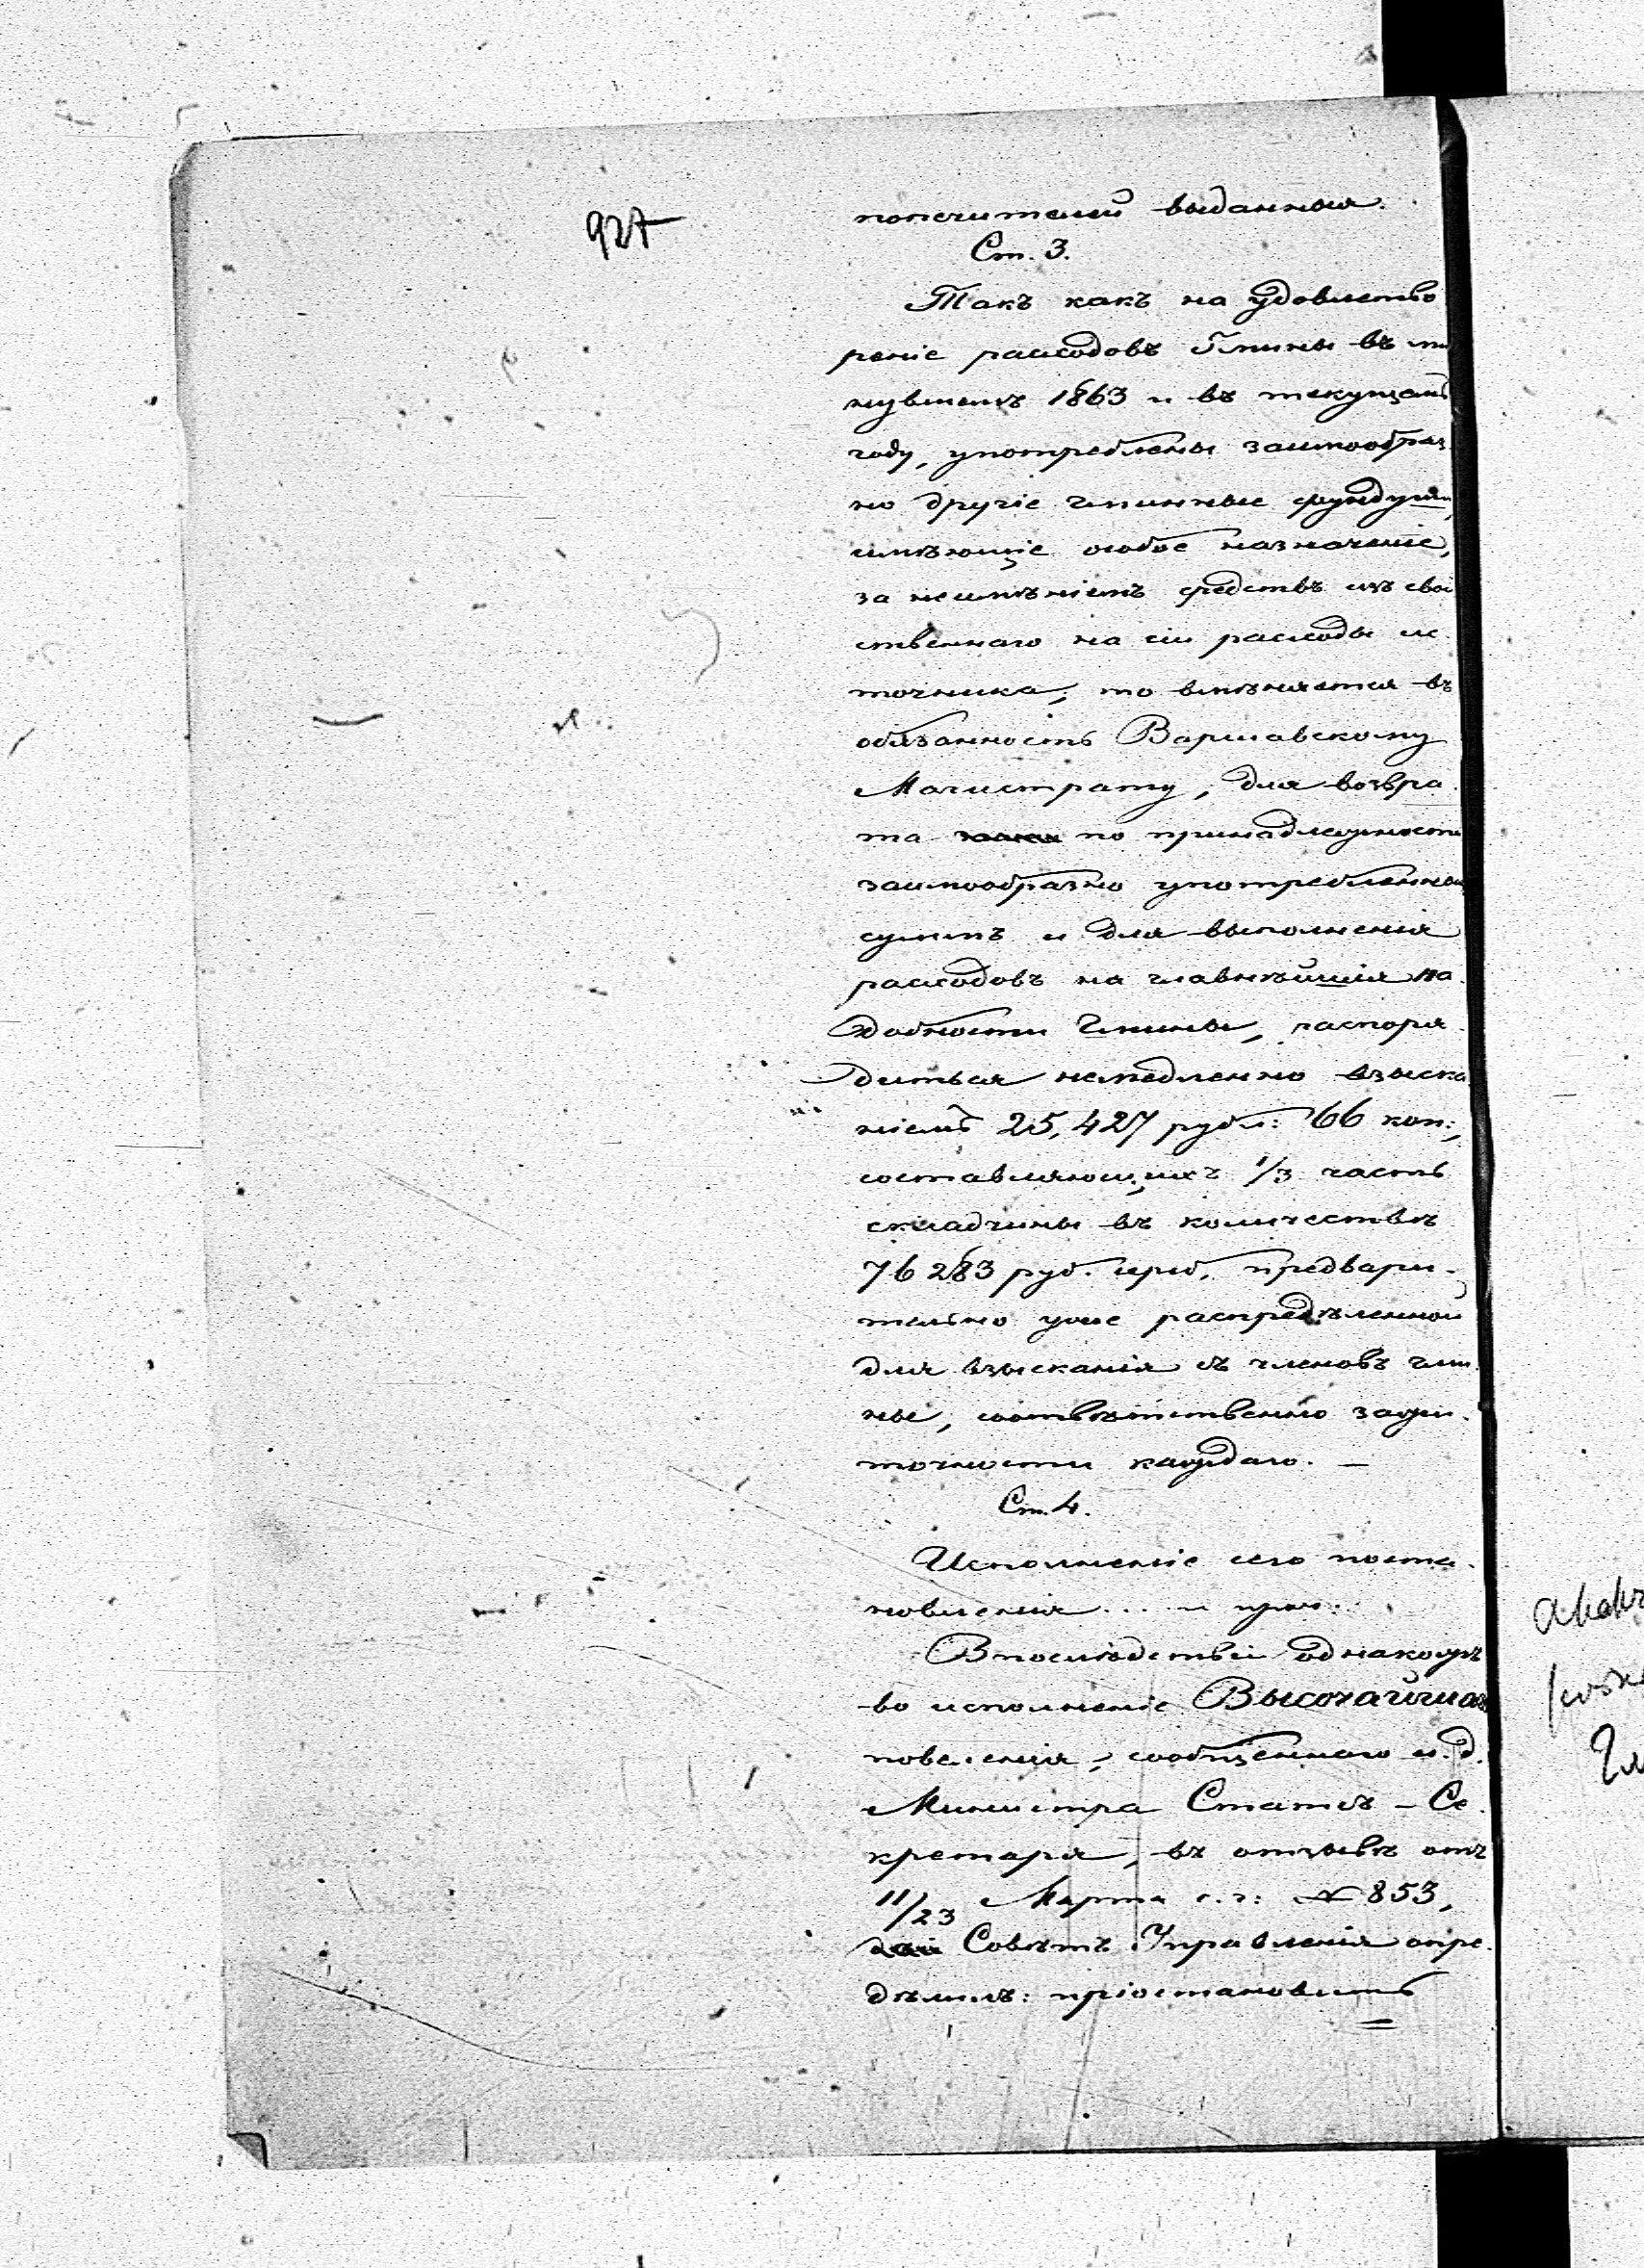 927
попечителей выданныя.
Ст. 3.
Такъ какъ на удовлетво
реніе расходовъ Гмины въ ми
нувшемъ 1863 и въ текущемъ
году, употреблены заимообраз
но другіе гминные фундуши,
имѣющіе особое назначеніе,
за неимѣніемъ средствъ изъ свой
ственнаго на сіи расходы ис
точника, то вмѣняется въ
обязанность Варшавскому
Магистрату, для возвра
та по принадлежности
заимообразно употребленныхъ
суммъ и для выполненія
расходовъ на главнѣйшія на
добности Гмины, распоря
диться немедленно взыска
ніемъ 25,427 рубл: 66 коп:,
составляющихъ 1/3 часть
складчины въ количествѣ
76283 руб. сереб. предвари-
тельно уже распредѣленной
для взысканія съ членовъ гми
ны, соотвѣтственно зажи
точности каждаго. —
Ст. 4.
Исполненіе сего поста
новленія ... и проч.
Впослѣдствіи однакожъ
во исполненіе Высочайшаго
повеленія, сообщеннаго и. д.
Министра Статсъ-Се
кретаря, въ отзывѣ отъ
11/23 Марта с. г: № 853,
Совѣтъ Управленія опре
дѣлилъ: пріостановить